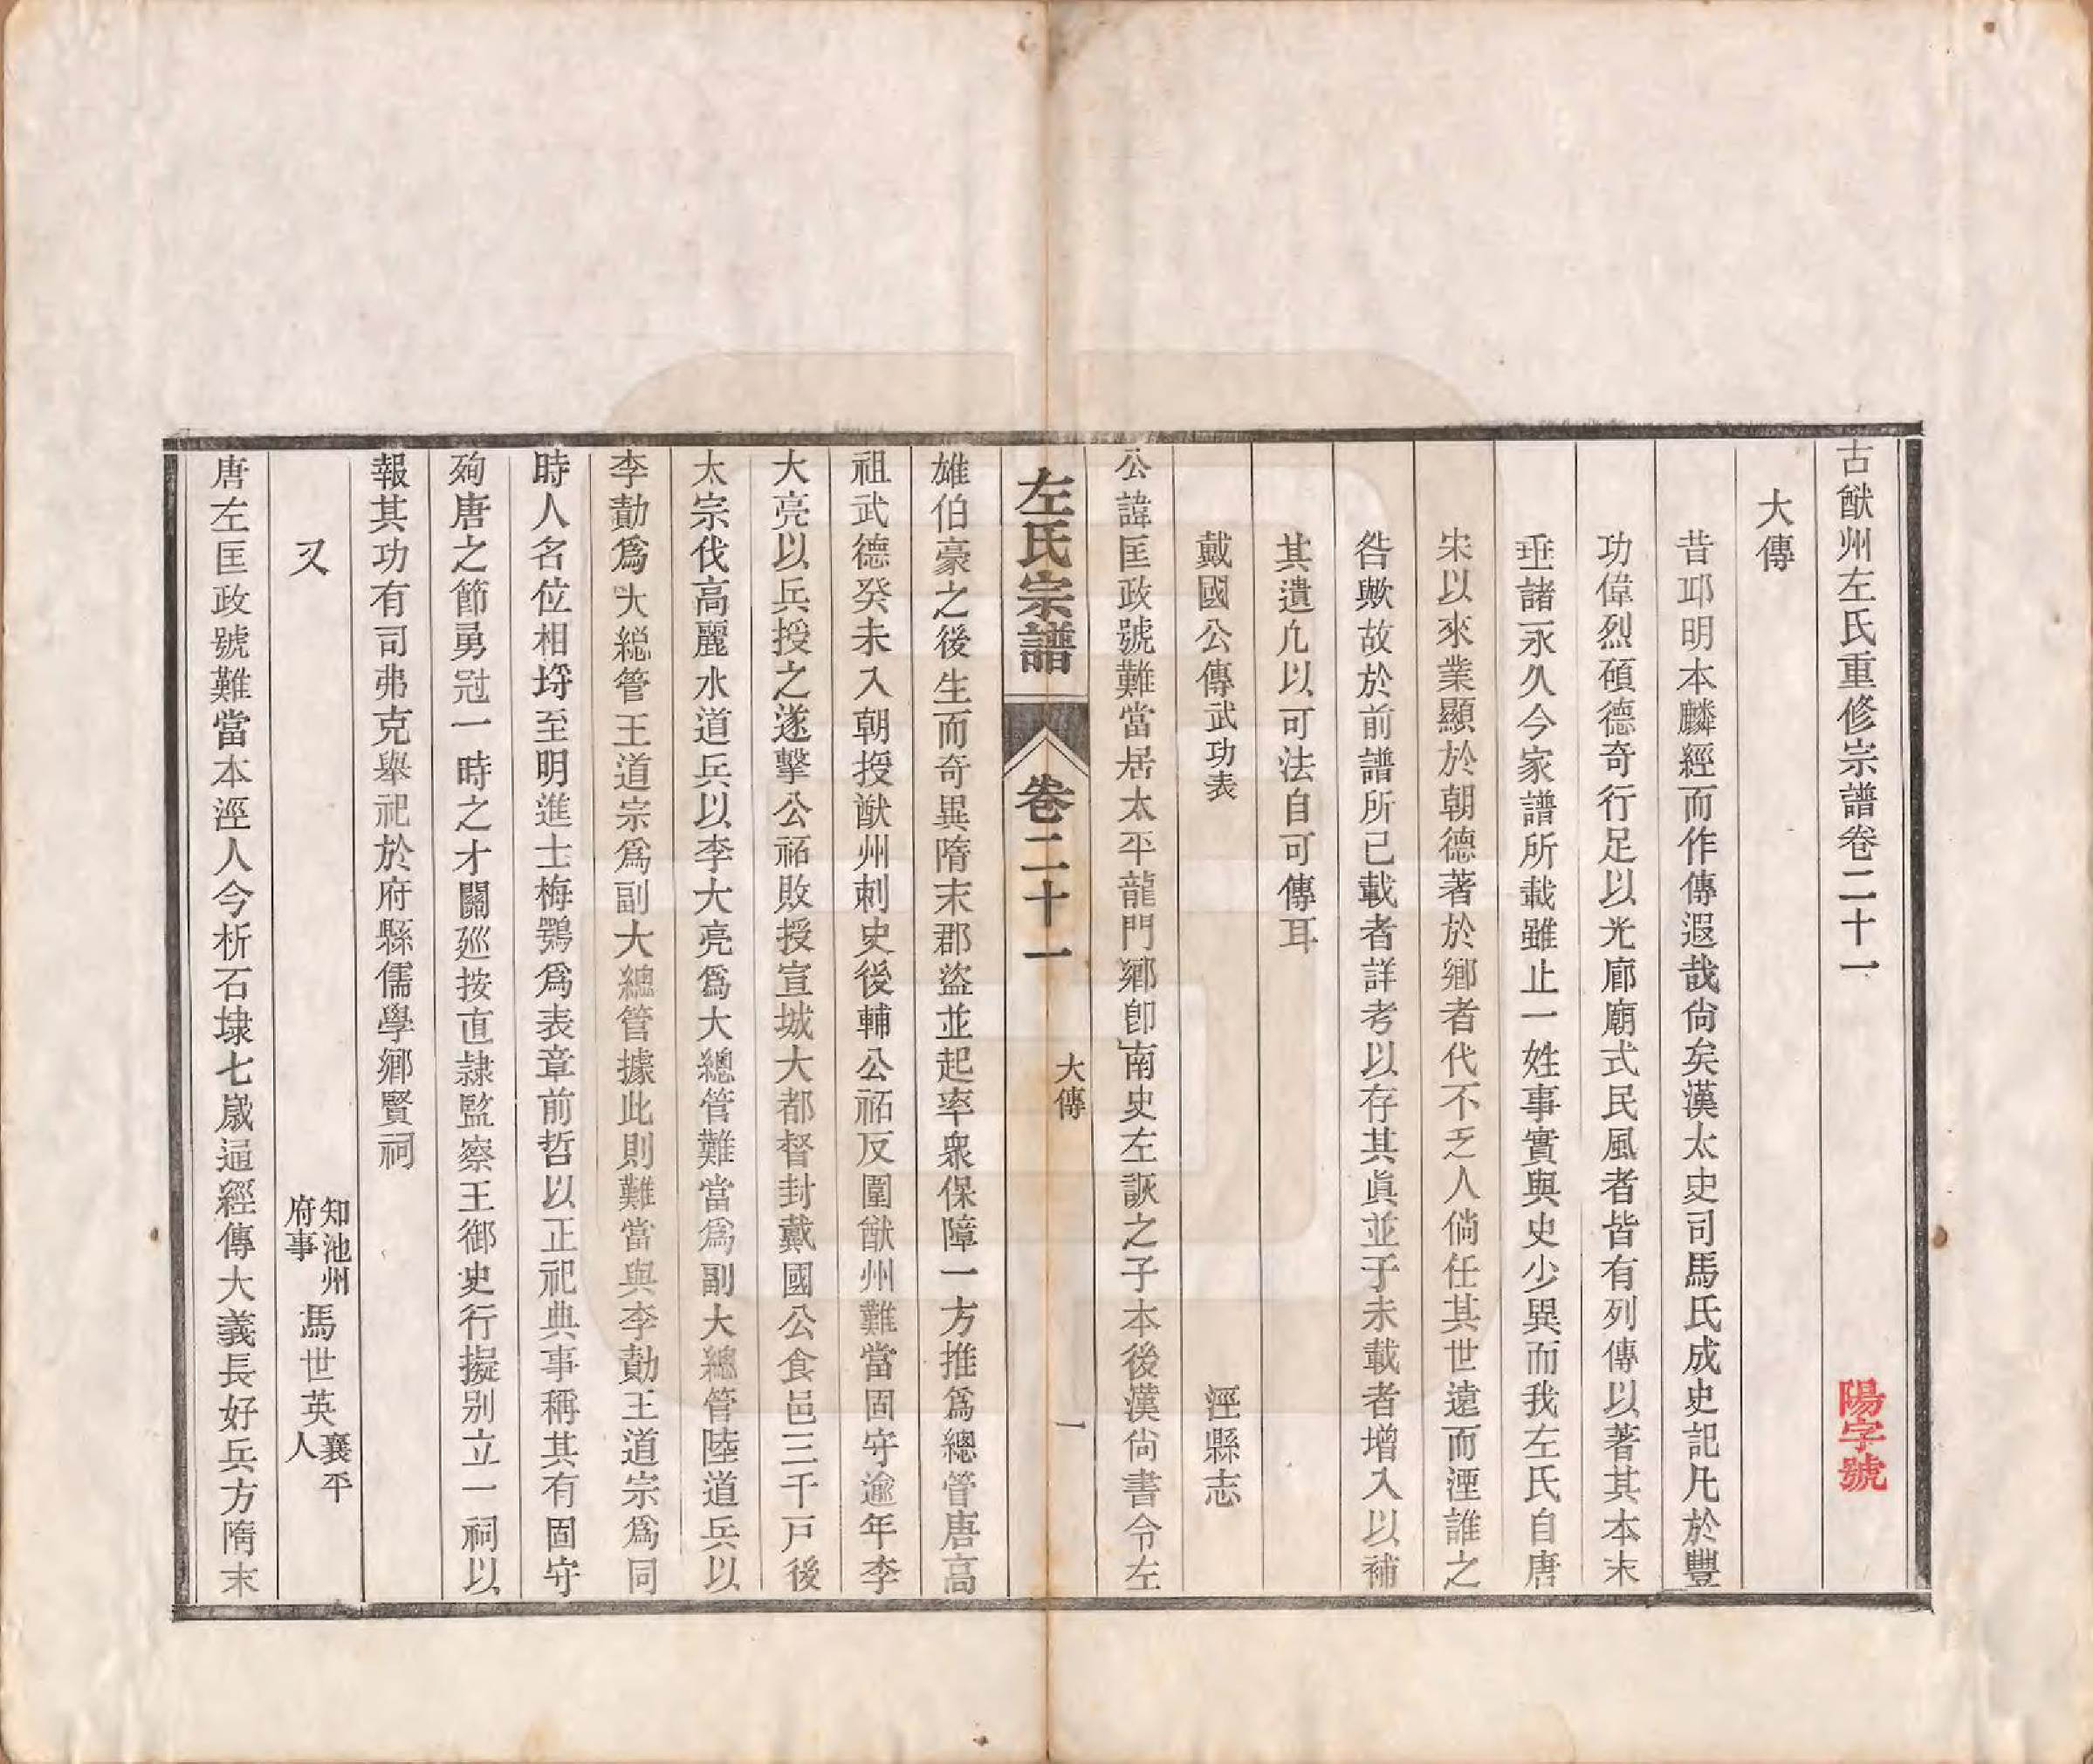 古猷州左氏重修宗譜卷二十一
陽字號
大傳
昔邱明本麟經而作傳遐哉尙矣漢太史司馬氏成史記凡於豐
功偉烈碩德奇行足以光廊廟式民風者皆有列傳以著其本末
垂諸永久今家譜所載雖止一姓事實與史少異而我左氏自唐
宋以來業顯於朝德著於鄉者代不乏人倘任其世遠而湮誰之
咎歟故於前譜所已載者詳考以存其眞並于未載者增入以補
其遺凢以可法自可傳耳
戴國公傳武功表
涇縣志
公諱匡政號難當居太平龍門鄉卽南史左詼之子本後漢尙書令左
左氏宗譜
卷二十一
大傳
一
雄伯豪之後生而奇異隋末郡盜並起率衆保障一方推爲總管唐高
祖武德癸未入朝授猷州刺史後輔公祏反圍猷州難當固守逾年李
大亮以兵授之遂擊公祏敗授宣城大都督封戴國公食邑三千戸後
太宗伐高麗水道兵以李大亮爲大總管難當爲副大總管陸道兵以
李勣爲大総管王道宗爲副大總管據此則難當與李勣王道宗爲同
時人名位相埒至明進士梅鶚爲表章前哲以正祀典事稱其有固守
殉唐之節勇冠一時之才關廵按直隷監察王御史行擬别立一祠以
報其功有司弗克舉祀於府縣儒學鄉賢祠
又
知池州府事
馮世英
襄平人
唐左匡政號難當本涇人今析石埭七歲通經傳大義長好兵方隋末